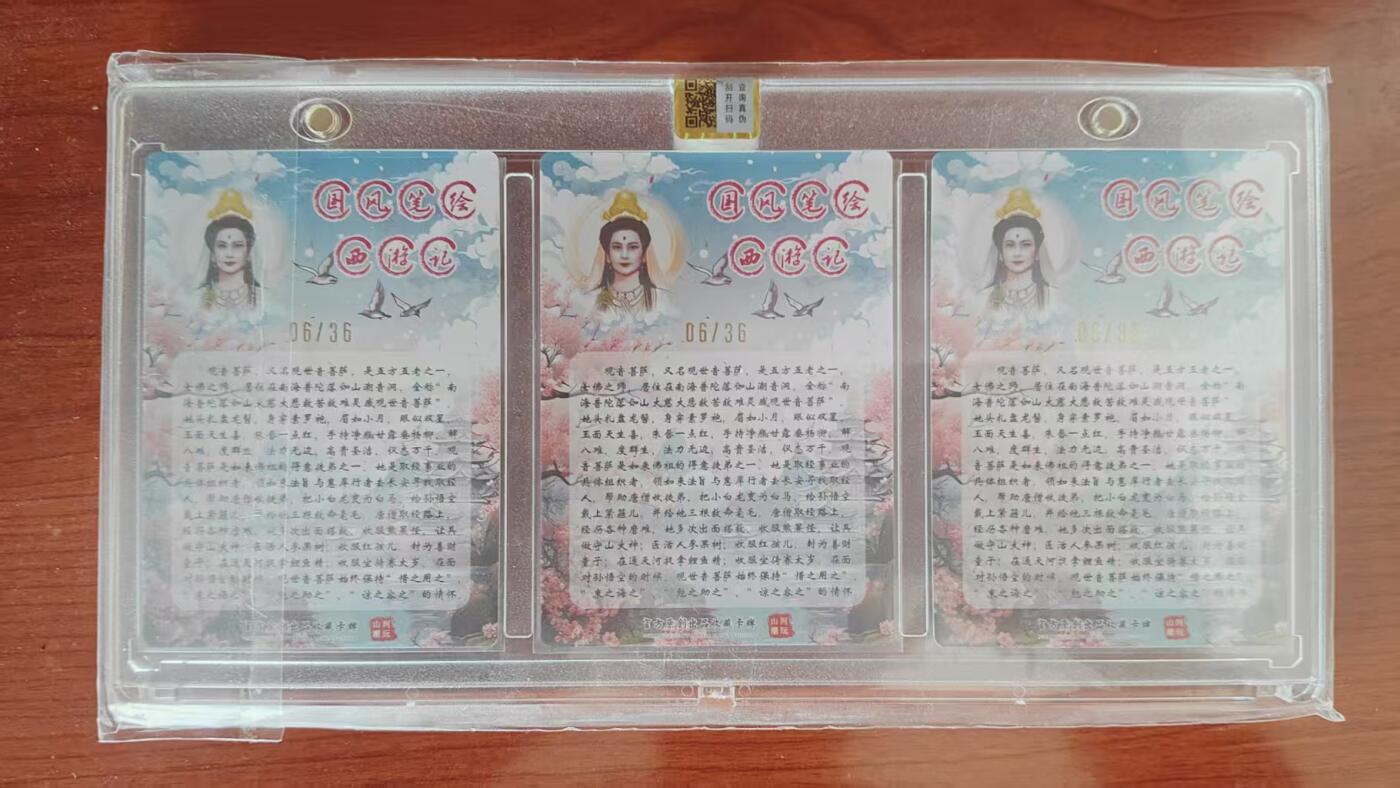 查询真伪
刮开扫码
国风笔绘
西游记
06/36
观音菩萨，又名观世音菩萨，是五方五老之一，
女佛之师，居住在南海普陀落伽山潮音洞，全称"南
海普陀落伽山大慈大悲救苦救难灵感观世音菩萨"。
她头扎盘龙髻，身穿素罗袍，眉如小月，眼似双星，
玉面天生喜，朱唇一点红，手持净瓶甘露垂杨柳，解
八难，度群生，法力无边，高贵圣洁，仪态万千。观
音菩萨是如来佛祖的得意徒弟之一。她是取经事业的
具体组织者，领如来法旨与惠岸行者去长安寻找取经
人，帮助唐僧收徒弟，把小白龙变为白马，给孙悟空
戴上紧箍儿，并给他三根救命毫毛。唐僧取经路上，
经历各种磨难，她多次出面搭救，收服熊罴怪，让其
做守山大神；医活人参果树；收服红孩儿，封为善财
童子；在通天河捉拿鲤鱼精；收服坐骑赛太岁。在面
对孙悟空的时候，观世音菩萨始终保持"惜之用之"、
"束之诲之"、"勉之助之"、"谅之容之"的情怀
官方原创出品收藏卡牌
国风笔绘
西游记
06/36
观音菩萨，又名观世音菩萨，是五方五老之一，
女佛之师，居住在南海普陀落伽山潮音洞，全称"南
海普陀落伽山大慈大悲救苦救难灵感观世音菩萨"。
她头扎盘龙髻，身穿素罗袍，眉如小月，眼似双星，
玉面天生喜，朱唇一点红，手持净瓶甘露垂杨柳，解
八难，度群生，法力无边，高贵圣洁，仪态万千。观
音菩萨是如来佛祖的得意徒弟之一。她是取经事业的
具体组织者，领如来法旨与惠岸行者去长安寻找取经
人，帮助唐僧收徒弟，把小白龙变为白马，给孙悟空
戴上紧箍儿，并给他三根救命毫毛。唐僧取经路上，
经历各种磨难，她多次出面搭救，收服熊罴怪，让其
做守山大神；医活人参果树；收服红孩儿，封为善财
童子；在通天河捉拿鲤鱼精；收服坐骑赛太岁。在面
对孙悟空的时候，观世音菩萨始终保持"惜之用之"、
"束之诲之"、"勉之助之"、"谅之容之"的情怀
官方原创出品收藏卡牌
国风笔绘
西游记
06/36
观音菩萨，又名观世音菩萨，是五方五老之一，
女佛之师，居住在南海普陀落伽山潮音洞，全称"南
海普陀落伽山大慈大悲救苦救难灵感观世音菩萨"。
她头扎盘龙髻，身穿素罗袍，眉如小月，眼似双星，
玉面天生喜，朱唇一点红，手持净瓶甘露垂杨柳，解
八难，度群生，法力无边，高贵圣洁，仪态万千。观
音菩萨是如来佛祖的得意徒弟之一。她是取经事业的
具体组织者，领如来法旨与惠岸行者去长安寻找取经
人，帮助唐僧收徒弟，把小白龙变为白马，给孙悟空
戴上紧箍儿，并给他三根救命毫毛。唐僧取经路上，
经历各种磨难，她多次出面搭救，收服熊罴怪，让其
做守山大神；医活人参果树；收服红孩儿，封为善财
童子；在通天河捉拿鲤鱼精；收服坐骑赛太岁。在面
对孙悟空的时候，观世音菩萨始终保持"惜之用之"、
"束之诲之"、"勉之助之"、"谅之容之"的情怀
官方原创出品收藏卡牌